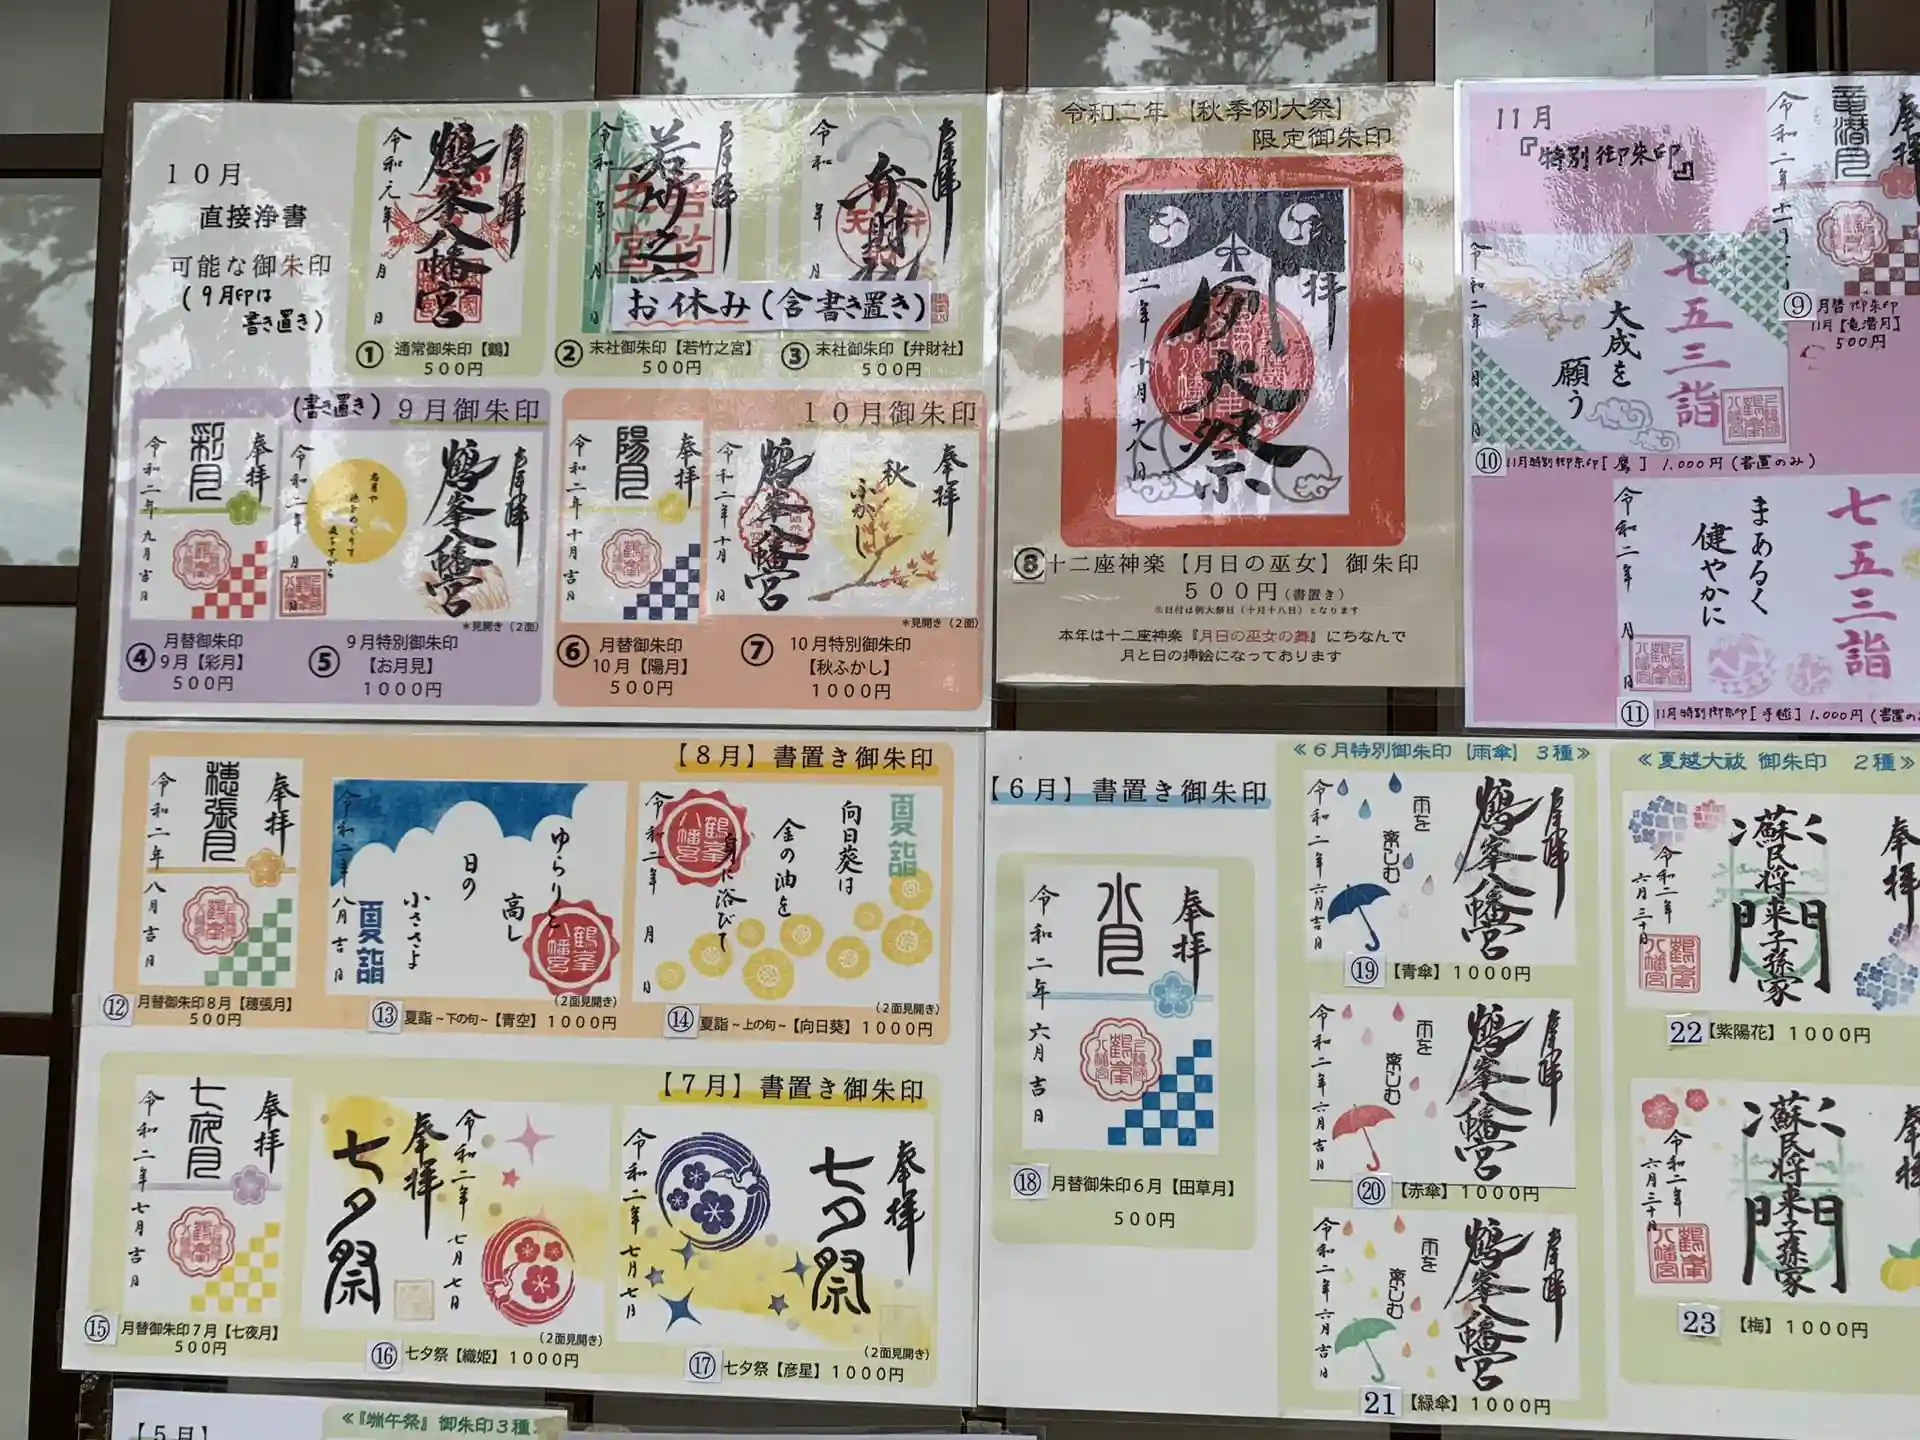 10月
直接浄書
可能な御朱印
(9月印は
書き置き)
令和元年 月 日
鶴峯八幡宮
奉拝
① 通常御朱印【鶴】
500円
令和 年 月
奉拝
② 末社御朱印【若竹之宮】
500円
令和 年 月
弁財
奉拝
③ 末社御朱印【弁財社】
500円
お休み(含書き置き)
(書き置き) 9月御朱印
奉拝
彩月
令和二年九月吉日
④ 月替御朱印
9月【彩月】
500円
奉拝
鶴峯八幡宮
令和二年 月 日
*見開き(2面)
⑤ 9月特別御朱印
【お月見】
1000円
10月御朱印
奉拝
陽月
令和二年十月吉日
⑥ 月替御朱印
10月【陽月】
500円
奉拝
秋
ふかし
鶴峯八幡宮
令和二年十月 日
*見開き(2面)
⑦ 10月特別御朱印
【秋ふかし】
1000円
令和二年【秋季例大祭】
限定御朱印
拝
例大祭
二年十月十八日
⑧ 十二座神楽【月日の巫女】御朱印
500円(書置き)
※日付は例大祭日(十月十八日)となります
本年は十二座神楽『月日の巫女の舞』にちなんで
月と日の挿絵になっております
11月
『特別御朱印』
奉拝
竜潜月
令和二年十一
⑨ 月替御朱印
11月【竜潜月】
500円
七五三詣
大成を
願う
令和二年 月 日
⑩ 11月特別御朱印[鷹] 1,000円(書置のみ)
七五三詣
まあるく
健やかに
令和二年 月 日
⑪ 11月特別御朱印[手毬] 1,000円(書置の
【8月】書置き御朱印
奉拝
穂張月
令和二年八月吉日
⑫ 月替御朱印8月【穂張月】
500円
ゆらりと
高し
日の
小ささよ
夏詣
令和二年八月吉日
(2面見開き)
⑬ 夏詣~下の句~【青空】1000円
夏詣
向日葵は
金の油を
身に浴びて
令和二年 月 日
(2面見開き)
⑭ 夏詣~上の句~【向日葵】1000円
【7月】書置き御朱印
奉拝
七夜月
令和二年七月吉日
⑮ 月替御朱印7月【七夜月】
500円
令和二年七月七日
奉拝
七夕祭
(2面見開き)
⑯ 七夕祭【織姫】1000円
奉拝
七夕祭
令和二年七月七日
(2面見開き)
⑰ 七夕祭【彦星】1000円
【6月】書置き御朱印
奉拝
水月
令和二年六月吉日
⑱ 月替御朱印6月【田草月】
500円
≪6月特別御朱印【雨傘】3種≫
奉拝
鶴峯八幡宮
雨を
楽しむ
令和二年六月吉日
⑲ 【青傘】1000円
奉拝
鶴峯八幡宮
雨を
楽しむ
令和二年六月吉日
⑳ 【赤傘】1000円
奉拝
鶴峯八幡宮
雨を
楽しむ
令和二年六月吉日
21 【緑傘】1000円
≪夏越大祓 御朱印 2種≫
奉拝
蘇民将来子孫家門
令和二年
六月三十日
22 【紫陽花】1000円
奉拝
蘇民将来子孫家門
令和二年
六月三十日
23 【梅】1000円
【5月】
≪『端午祭』御朱印3種